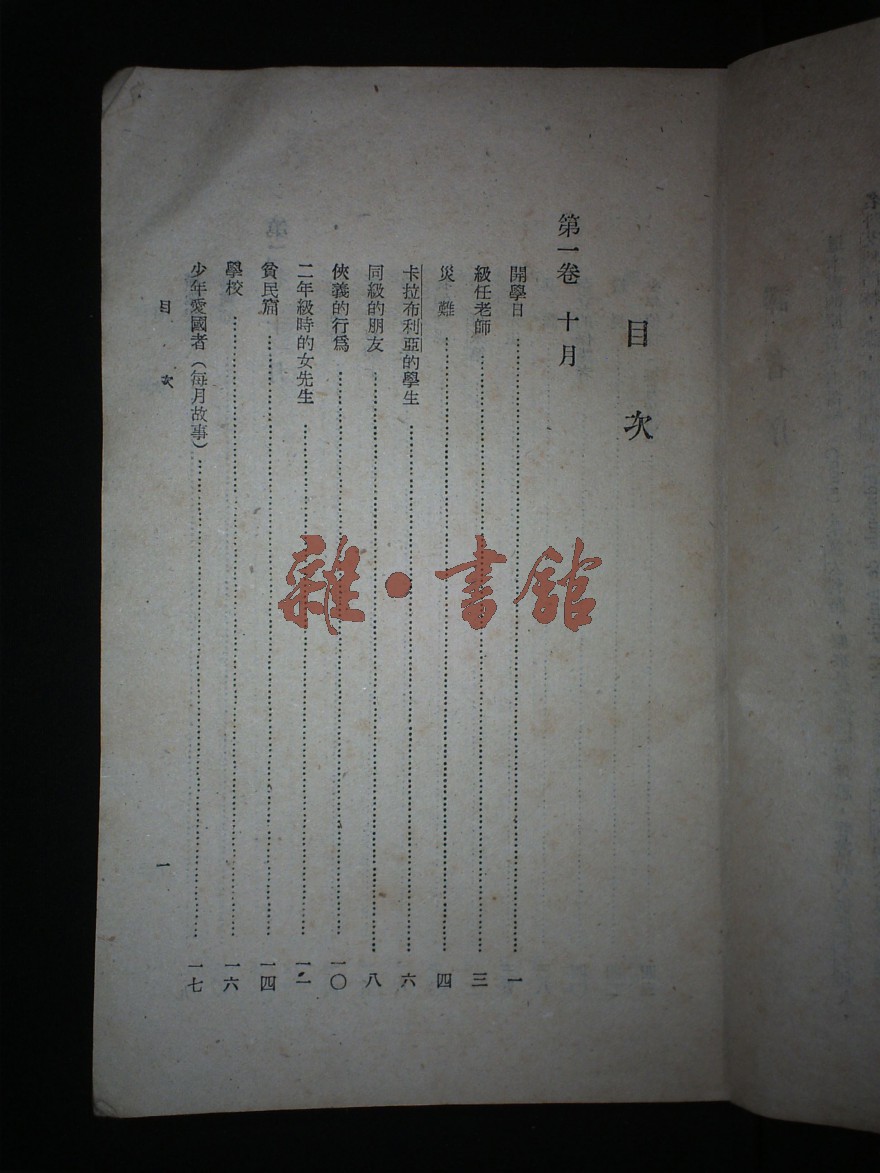 目次
第一卷 十月
開學日……一
級任老師……三
災難……四
卡拉布利亞的學生……六
同級的朋友……八
俠義的行爲……一〇
二年級時的女先生……一二
貧民窟……一四
學校……一六
少年愛國者（每月故事）……一七
目次
一
雜·書館